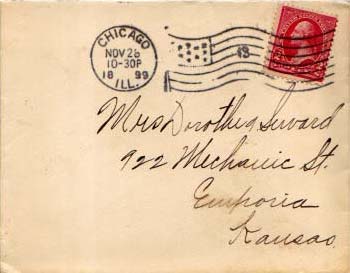 CHICAGO
NOV 28
10-30P
18 99
ILL.
13
Mrs Dorothy
922 Mechanic St.
Emporia
Kansas